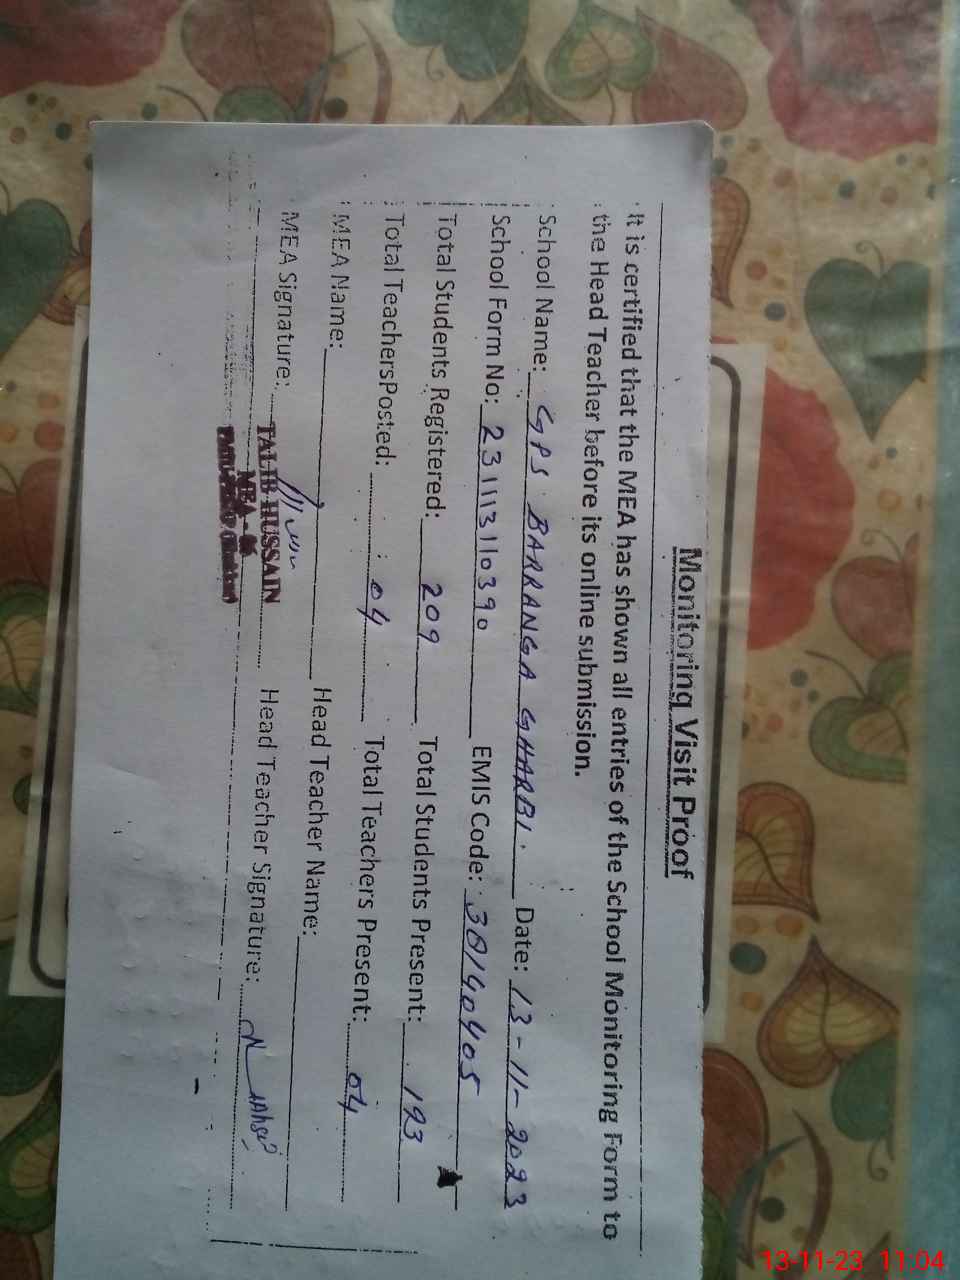 Monitoring Visit Proof
It is certified that the MEA has shown all entries of the School Monitoring Form to
the Head Teacher before its online submission.
School Name: GPS BARRANGA GHARBI. Date: 13-11-2023
School Form No: 231113110390 EMIS Code: 38140405
Total Students Registered: 209 Total Students Present: 193
Total TeachersPosted: 04 Total Teachers Present: 04
MEA Name: Head Teacher Name:
MEA Signature: Head Teacher Signature:
TALIB HUSSAIN
MEA-
13-11-23 11:04